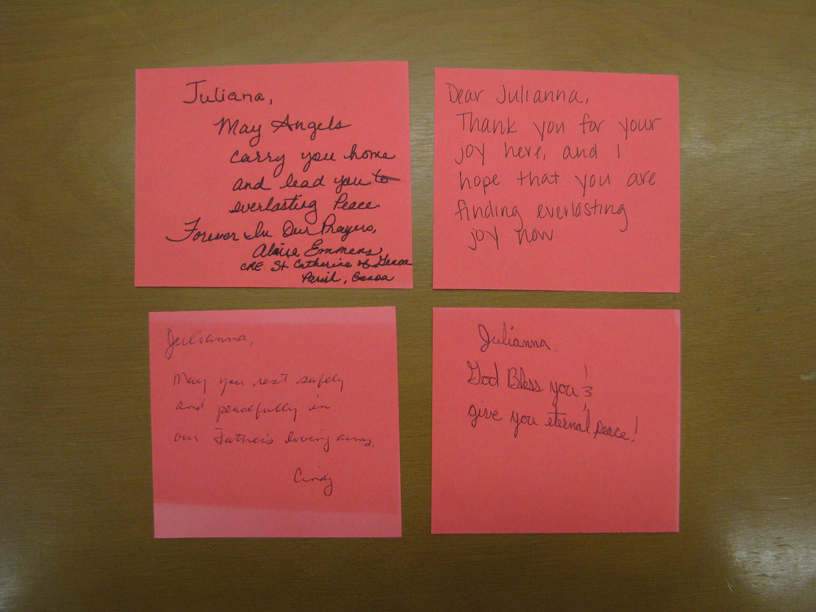 Juliana,
May Angels
carry you home
and lead you to
everlasting Peace
Forever In Our Prayers,
Emmens
CRE St. Catherine of Genoa
Parish, Genoa
Dear Julianna,
Thank you for your
joy here, and I
hope that you are
finding everlasting
joy now.
Julianna,
May you rest safely
and peacefully in
our Father's loving arms.
Cindy
Julianna
God Bless you &
give you eternal peace!